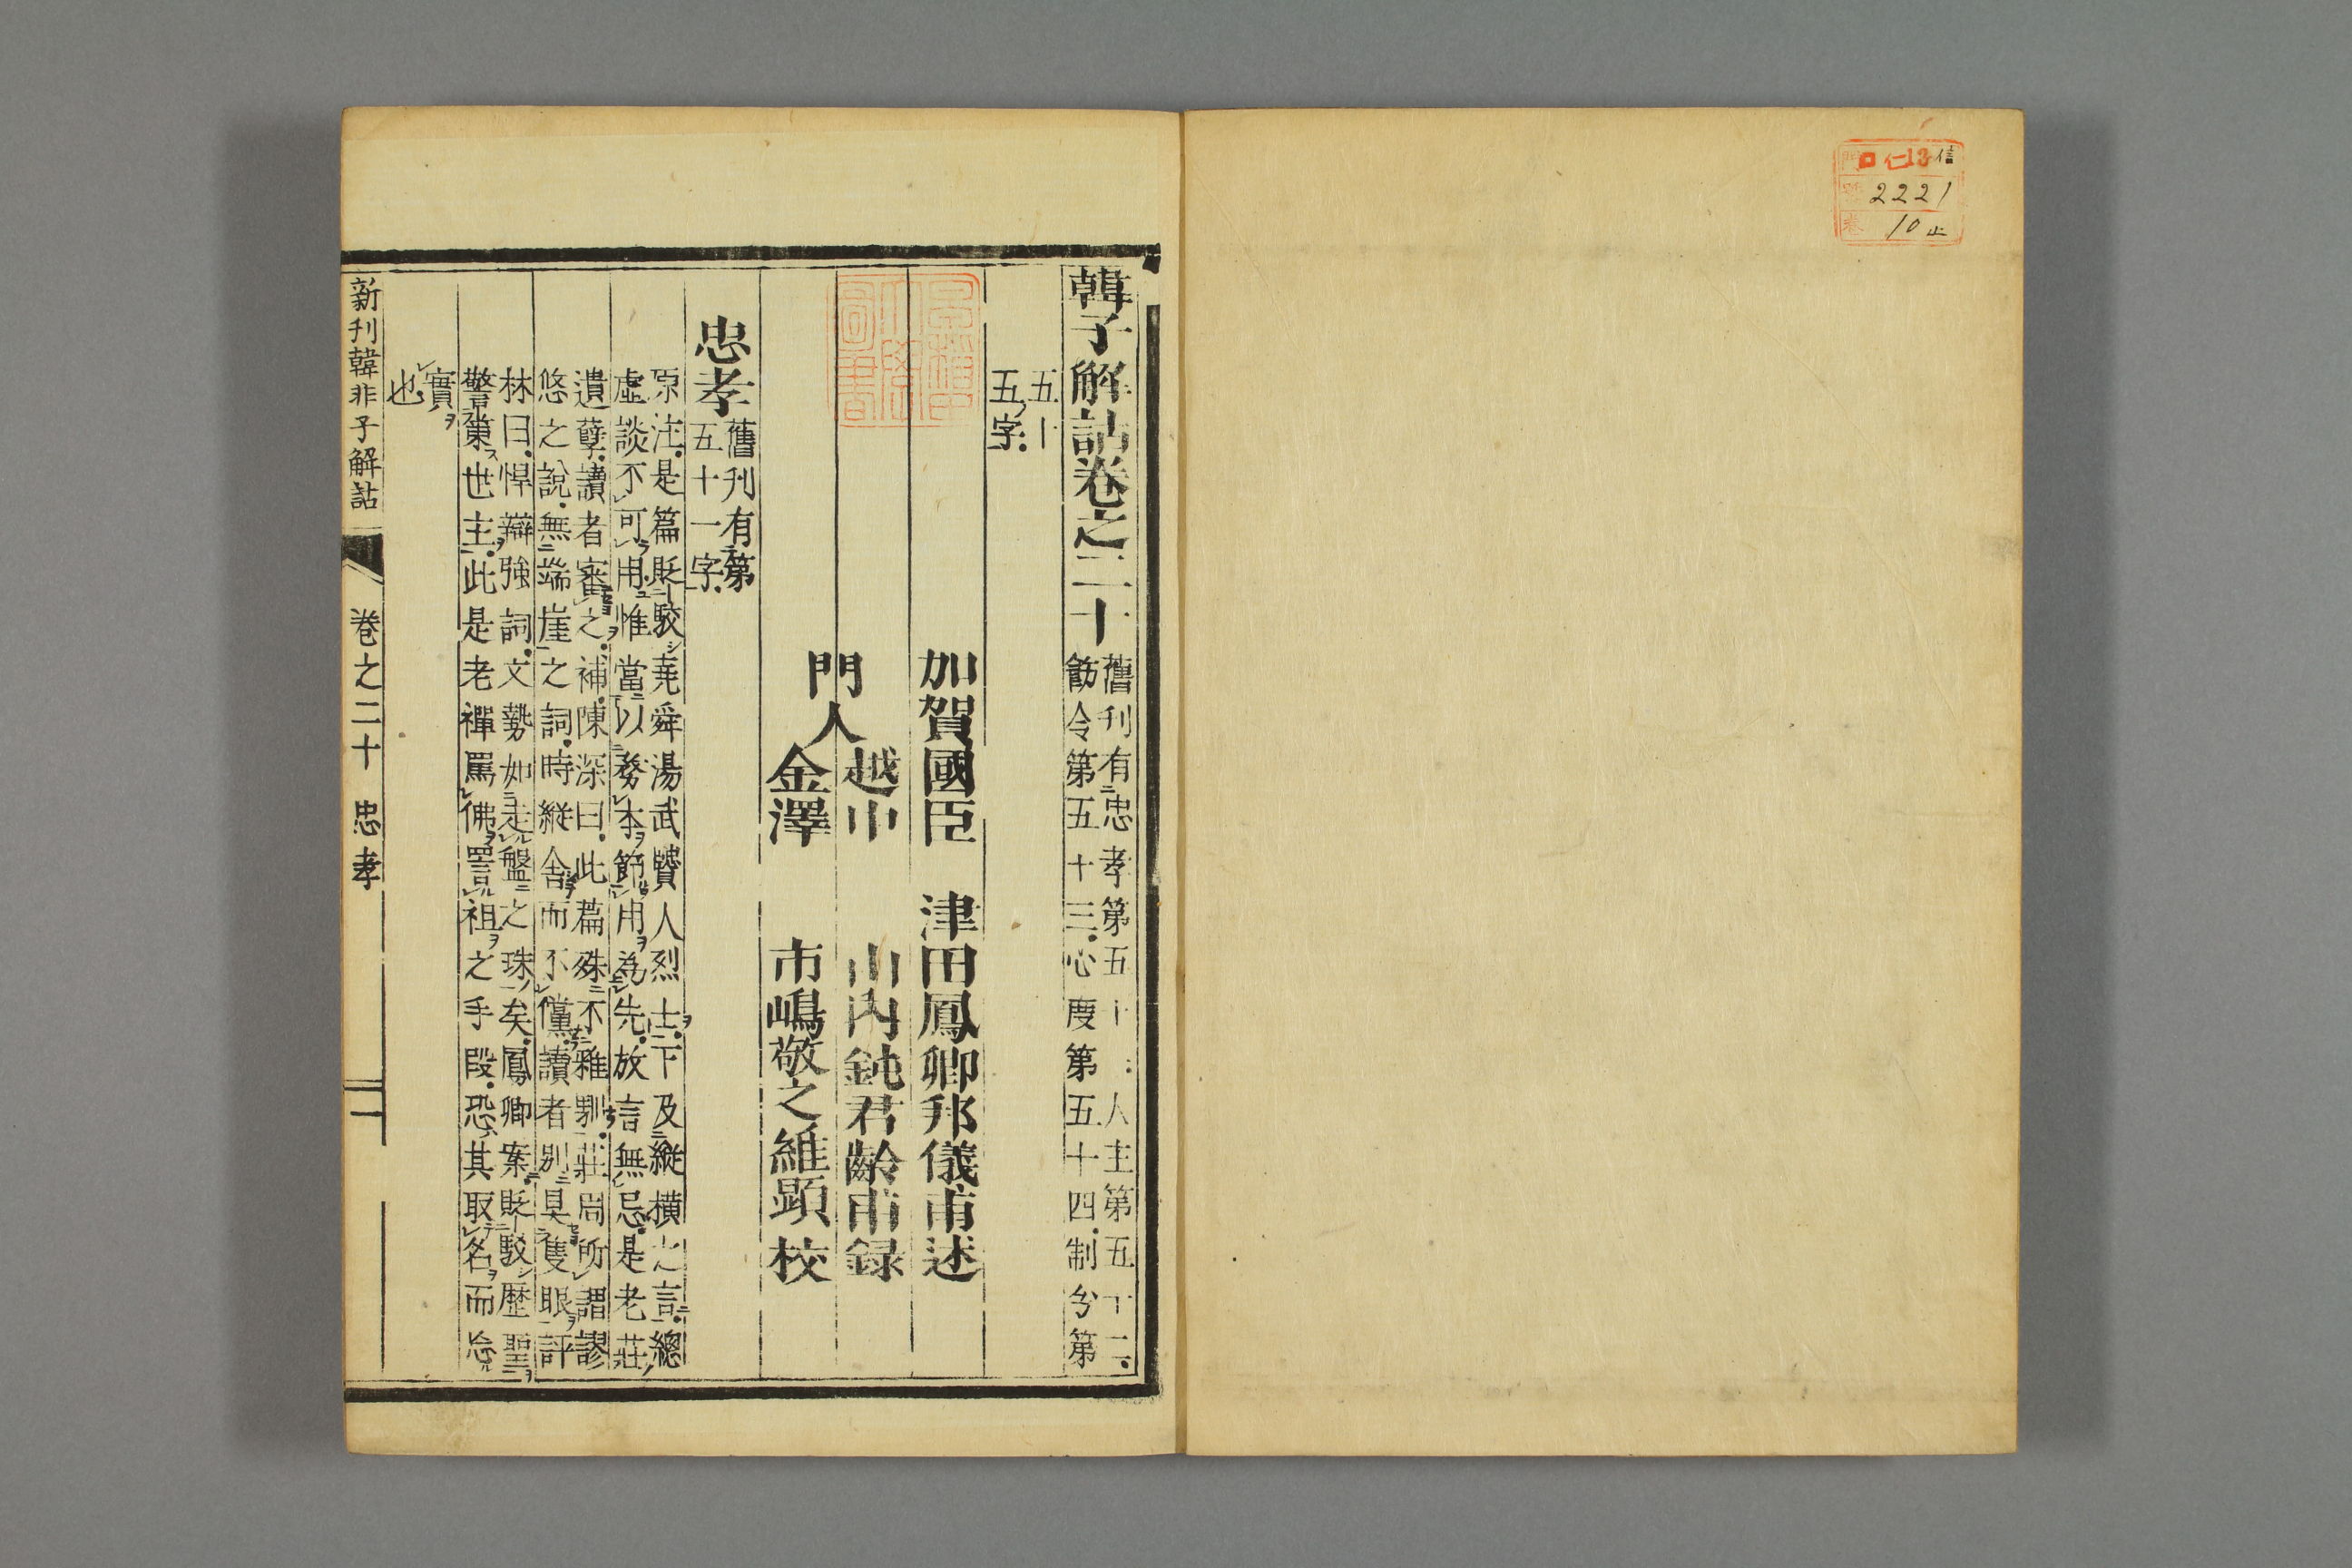 信
13
2221
10止
韓子解詁卷之二十
舊刊有忠孝第五十一人主第五十二
飭令第五十三心度第五十四制分第
五十
五字
加賀國臣 津田鳳卿邦儀甫述
門人
越中 山內鈍君齡甫録
金澤 市嶋敬之維顕校
忠孝
舊刊有第
五十一字
原注是篇貶駮堯舜湯武贊人烈士下及縱横之言總
虛談不可用惟當以務本節用為先放言無忌是老莊
遺孽讀者審之補陳深曰此篇殊不雅馴莊周所謂謬
悠之說無端崖之詞時縱舍而不儻讀者別具隻眼評
林曰悍辯強詞文勢如走盤之珠矣鳳卿案貶駁歷聖
警策世主此是老禪罵佛詈祖之手段恐其取名而怠
實
也
新刊韓非子解詁
卷之二十 忠孝
一